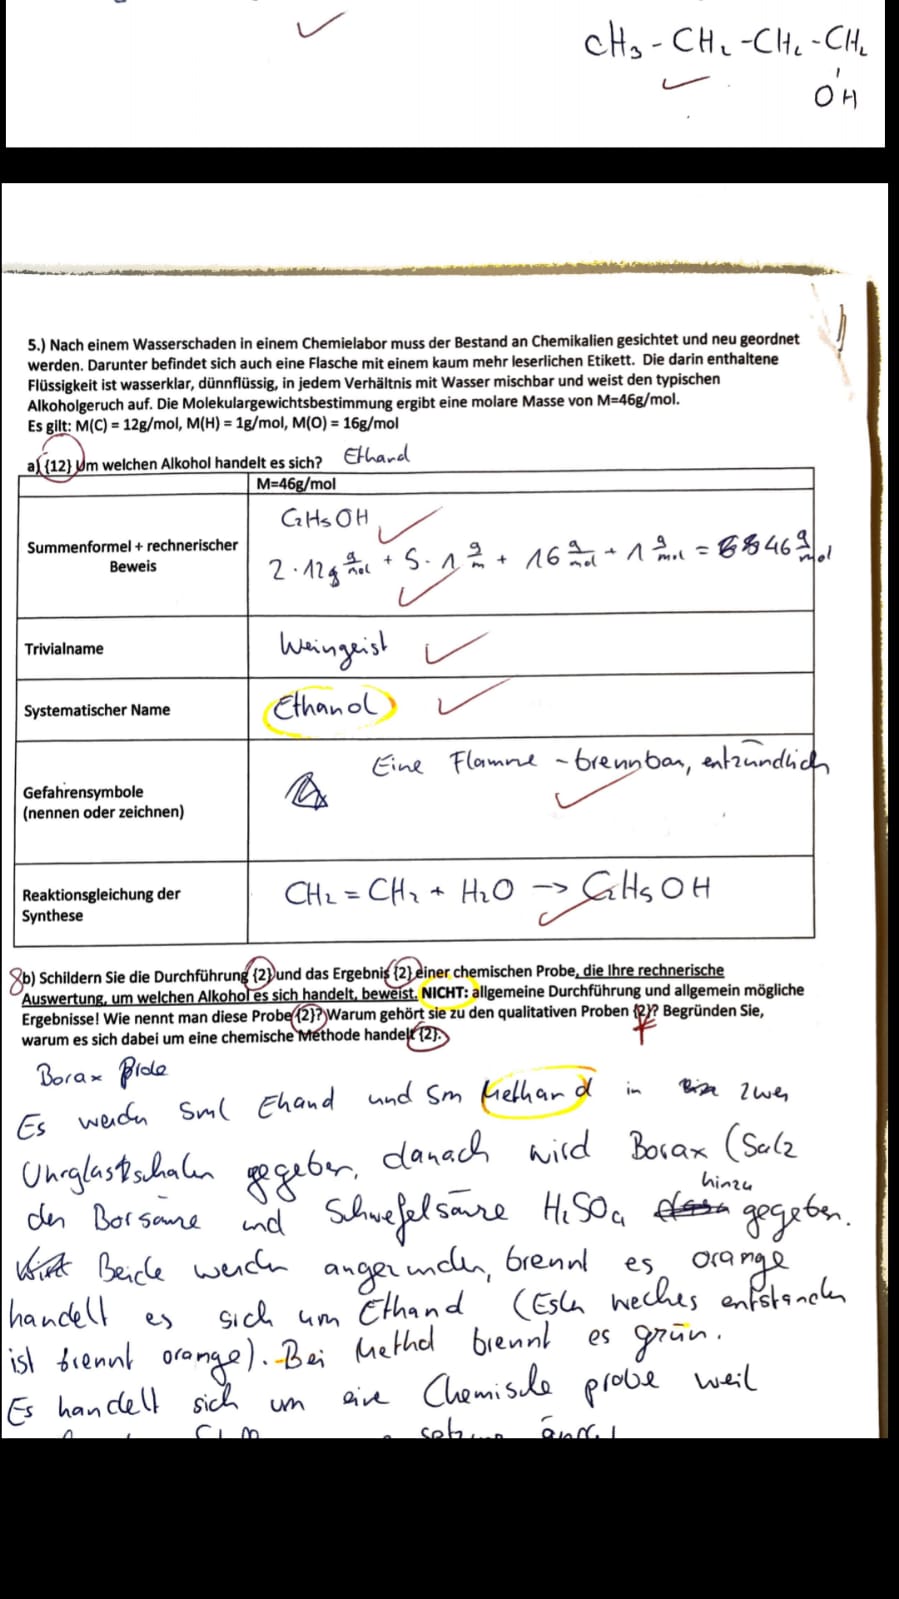 CH3 - CH2 - CH2 - CH2
OH
5.) Nach einem Wasserschaden in einem Chemielabor muss der Bestand an Chemikalien gesichtet und neu geordnet
werden. Darunter befindet sich auch eine Flasche mit einem kaum mehr leserlichen Etikett. Die darin enthaltene
Flüssigkeit ist wasserklar, dünnflüssig, in jedem Verhältnis mit Wasser mischbar und weist den typischen
Alkoholgeruch auf. Die Molekulargewichtsbestimmung ergibt eine molare Masse von M=46g/mol.
Es gilt: M(C) = 12g/mol, M(H) = 1g/mol, M(O) = 16g/mol
a) {12} Um welchen Alkohol handelt es sich? Ethanol
M=46g/mol
Summenformel + rechnerischer
Beweis
C2H5OH
2 · 12 g/mol + 5 · 1 g/m + 16 g/mol + 1 g/mol = 46 g/mol
Trivialname
Weingeist
Systematischer Name
Ethanol
Gefahrensymbole
(nennen oder zeichnen)
Eine Flamme - brennbar, entzündlich
Reaktionsgleichung der
Synthese
CH2 = CH2 + H2O -> C2H5OH
8 b) Schildern Sie die Durchführung {2} und das Ergebnis {2} einer chemischen Probe, die Ihre rechnerische
Auswertung, um welchen Alkohol es sich handelt, beweist. NICHT: allgemeine Durchführung und allgemein mögliche
Ergebnisse! Wie nennt man diese Probe {2}? Warum gehört sie zu den qualitativen Proben {2}? Begründen Sie,
warum es sich dabei um eine chemische Methode handelt {2}.
Borax
Es werden 5ml Ehanol und 5m Methanol in zwei
Uhrglasschalen gegeben, danach wird Borax (Salz
der Borsäure und Schwefelsäure H2SO4 hinzu gegeben.
Beide werden angezunden, brennt es orange
handelt es sich um Ethanol (Ester welches entstanden
ist brennt orange). - Bei Methol brennt es grün.
Es handelt sich um eine Chemische probe weil